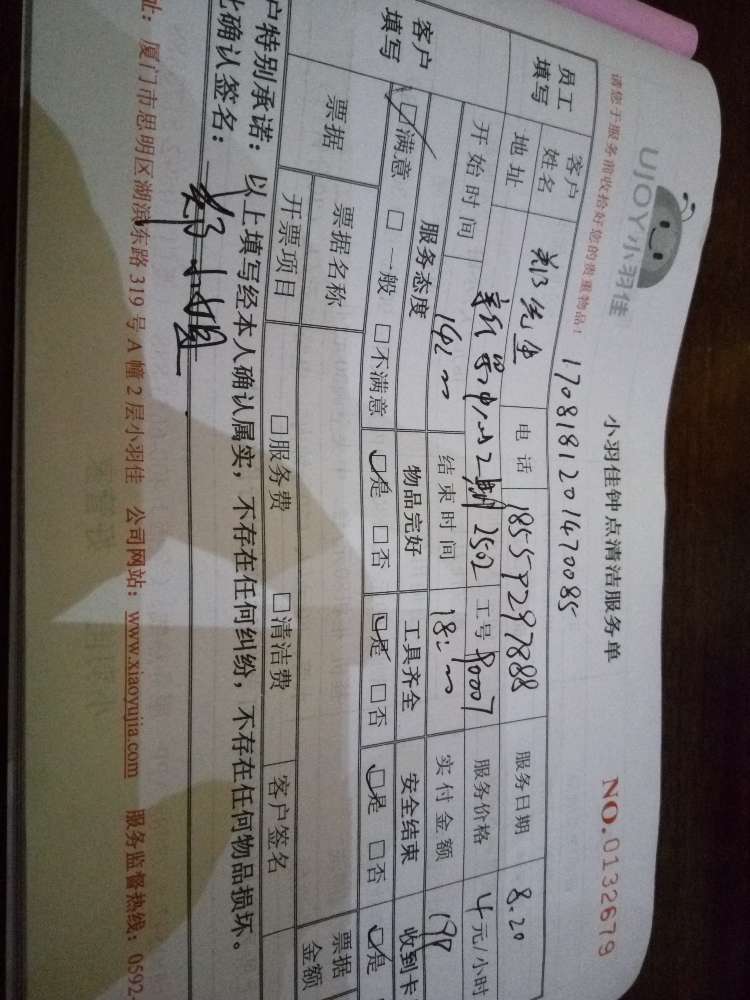 UJOY小羽佳
小羽佳钟点清洁服务单
NO.0132679
请您于服务前收拾好您的贵重物品！
170818120147 0085
员工填写 客户姓名 郑先生 电话 18559297888 服务日期 8.20
地址 2502 工号 服务价格 4元/小时
开始时间 14:00 结束时间 18:00 实付金额 198
客户填写 服务态度 物品完好 工具齐全 安全结束 收到卡
☑满意 □一般 □不满意 ☑是 □否 ☑是 □否 ☑是 □否 ☑是
票据 票据名称 □服务费 □清洁费 客户签名 票据金额
开票项目
户特别承诺：以上填写经本人确认属实，不存在任何纠纷，不存在任何物品损坏。
此确认签名：郑小姐
址：厦门市思明区湖滨东路319号A幢2层小羽佳 公司网站：www.xiaoyujia.com 服务监督热线：0592-